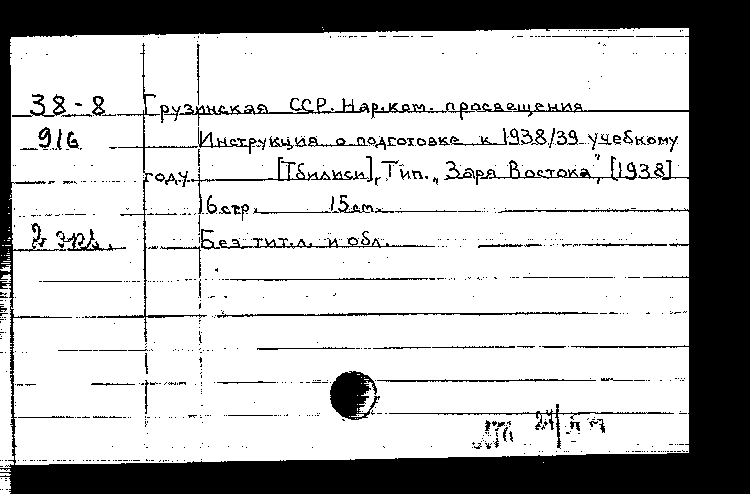 38-8 Грузинская ССР. Нар.ком. просвещения
916 Инструкция о подготовке к 1938/39 учебному
году. [Тбилиси], Тип. „Заря Востока", [1938]
16 стр. 15 см.
2 экз. Без тит.л. и обл.